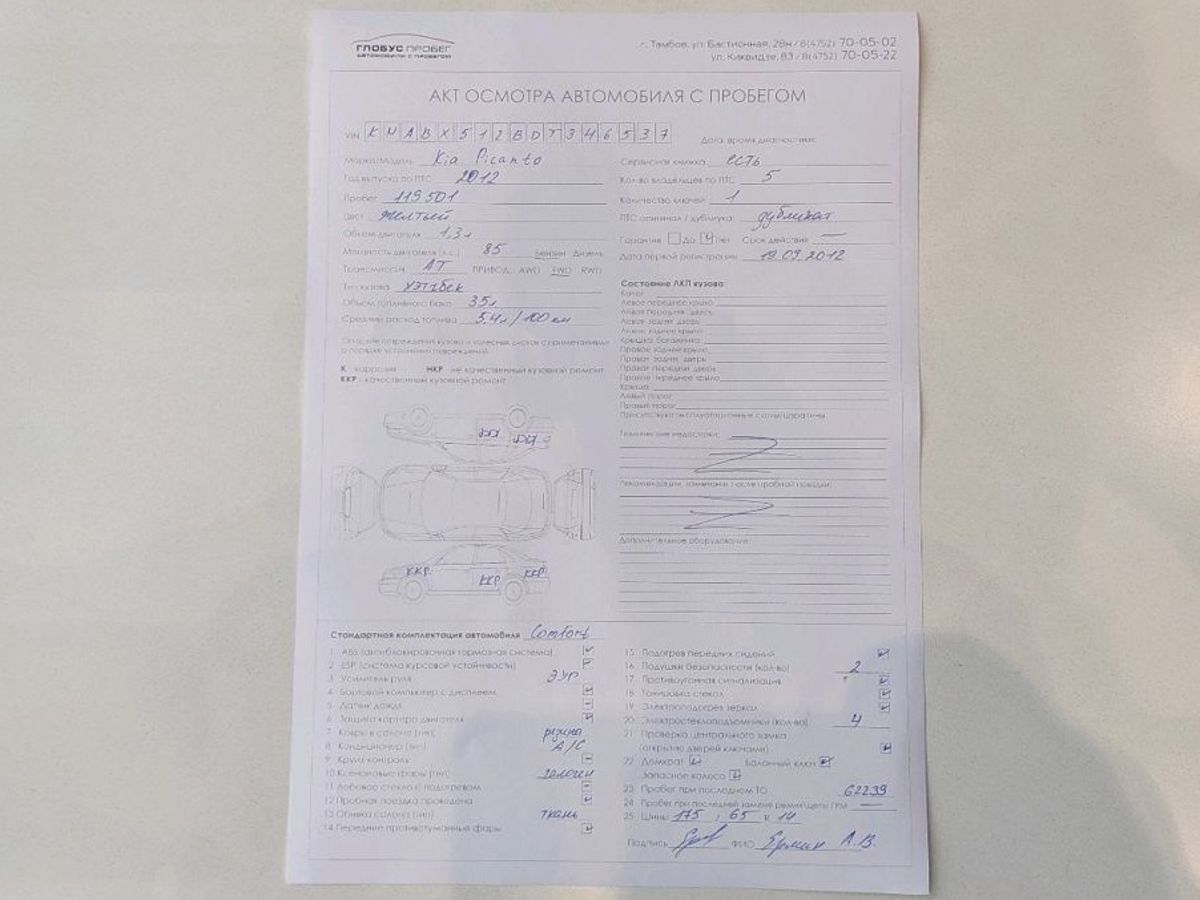 ГЛОБУС ПРОБЕГ
АВТОМОБИЛИ С ПРОБЕГОМ
г. Тамбов, ул. Бастионная, 28н / 8(4752) 70-05-02
ул. Киквидзе, 83 / 8(4752) 70-05-22
АКТ ОСМОТРА АВТОМОБИЛЯ С ПРОБЕГОМ
VIN KNABX512BDT346537
Дата, время диагностики:
Марка/Модель Kia Picanto
Год выпуска по ПТС 2012
Пробег 119 501
Цвет желтый
Объем двигателя 1,3 л
Мощность двигателя (л.с.) 85 Бензин Дизель
Трансмиссия АТ ПРИВОД: AWD FWD RWD
Тип кузова хэтчбек
Объем топливного бака 35 л
Средний расход топлива 5,4 л/100 км
Сервисная книжка есть
Кол-во владельцев по ПТС 5
Количество ключей 1
ПТС оригинал / дубликат: дубликат
Гарантия Да Нет Срок действия —
Дата первой регистрации 19.09.2012
Описание повреждений кузова и колесных дисков с примечаниями
о порядке устранения повреждений.
К - коррозия НКР - не качественный кузовной ремонт
ККР - качественный кузовной ремонт
ККР ККР
ККР ККР ККР
Состояние ЛКП кузова:
Капот
Левое переднее крыло
Левая передняя дверь
Левая задняя дверь
Левое заднее крыло
Крышка багажника
Правое заднее крыло
Правая задняя дверь
Правая передняя дверь
Правое переднее крыло
Крыша
Левый порог
Правый порог
Присутствуют эксплуатационные сколы/царапины
Технические недостатки:
Рекомендации, замечания после пробной поездки:
Дополнительное оборудование:
Стандартная комплектация автомобиля Comfort
1 ABS (антиблокировочная тормозная система)
2 ESP (система курсовой устойчивости)
3 Усилитель руля ЭУР
4 Бортовой компьютер с дисплеем
5 Датчик дождя
6 Защита картера двигателя
7 Ковры в салоне (тип) резина
8 Кондиционер (тип) A/C
9 Круиз-контроль
10 Ксеноновые фары (тип) галоген
11 Лобовое стекло с подогревом
12 Пробная поездка проведена
13 Обивка салона (тип) ткань
14 Передние противотуманные фары
15 Подогрев передних сидений
16 Подушки безопасности (кол-во) 2
17 Противоугонная сигнализация
18 Тонировка стекол
19 Электроподогрев зеркал
20 Электростеклоподъемники (кол-во) 4
21 Проверка центрального замка
(открытие дверей ключами)
22 Домкрат Балонный ключ
Запасное колесо
23 Пробег при последнем ТО 62239
24 Пробег при последней замене ремня/цепи ГРМ —
25 Шины 175 / 65 R 14
Подпись ФИО Ермин А.В.